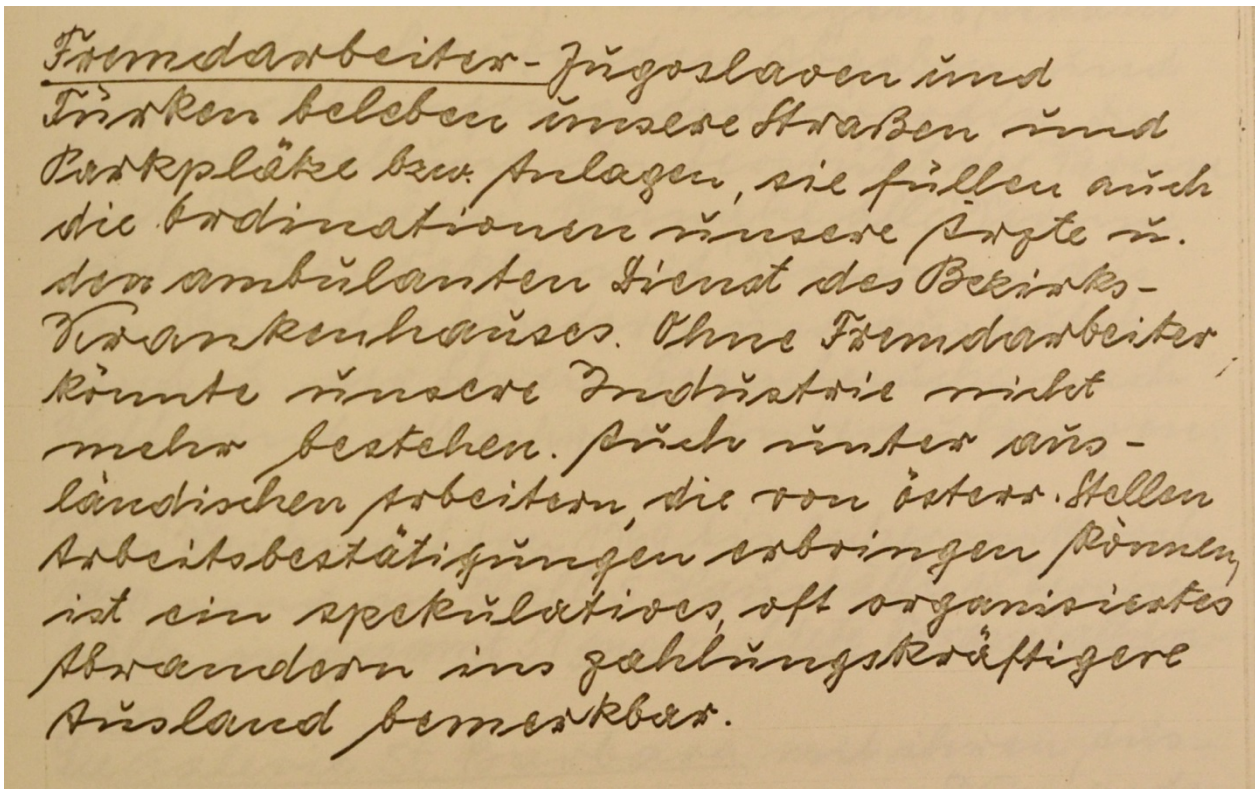 Fremdarbeiter - Jugoslaven und
Türken beleben unsere Straßen und
Parkplätze bzw. Anlagen, sie füllen auch
die Ordinationen unsere Ärzte u.
den ambulanten Dienst des Bezirks-
Krankenhauses. Ohne Fremdarbeiter
könnte unsere Industrie nicht
mehr bestehen. Auch unter aus-
ländischen Arbeitern, die von österr. Stellen
Arbeitsbestätigungen erbringen können,
ist ein spekulatives, oft organisiertes
Abwandern ins zahlungskräftigere
Ausland bemerkbar.